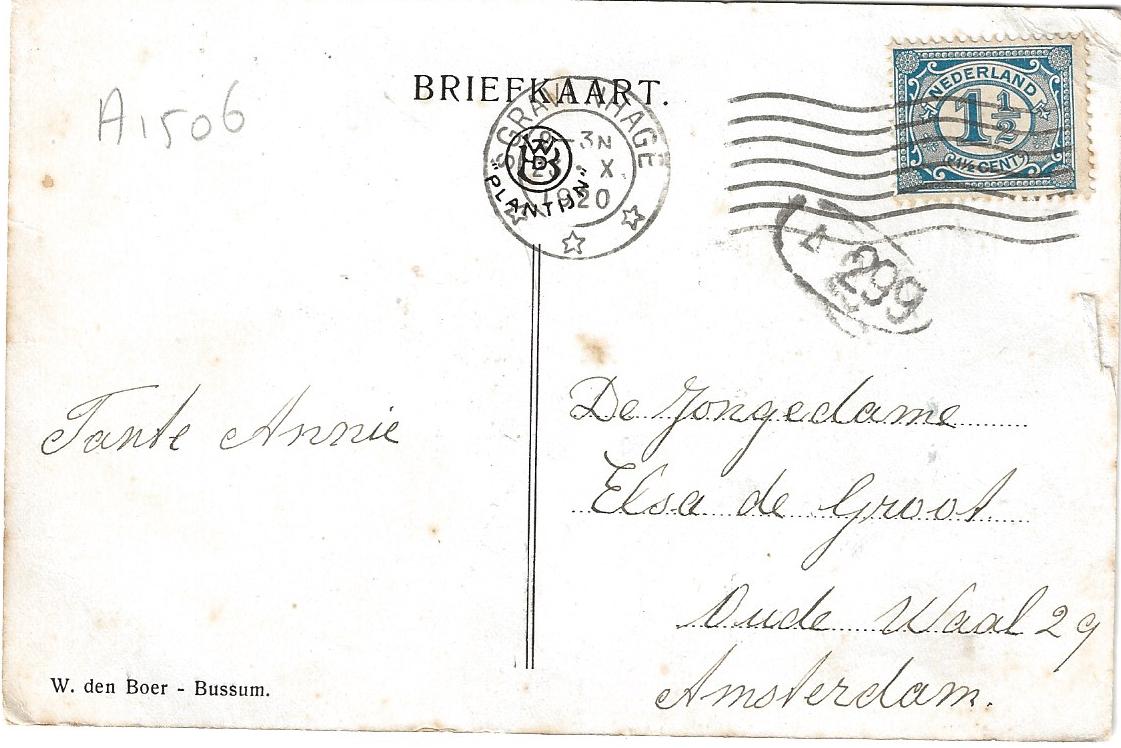 A1506
BRIEFKAART.
NEDERLAND
1½
(1½ CENT)
'S GRAVENHAGE
-3N
X
1920
WDB
"PLANTIJN"
299
Tante Annie
De Jongedame
Elsa de Groot
Oude Waal 29
Amsterdam.
W. den Boer - Bussum.